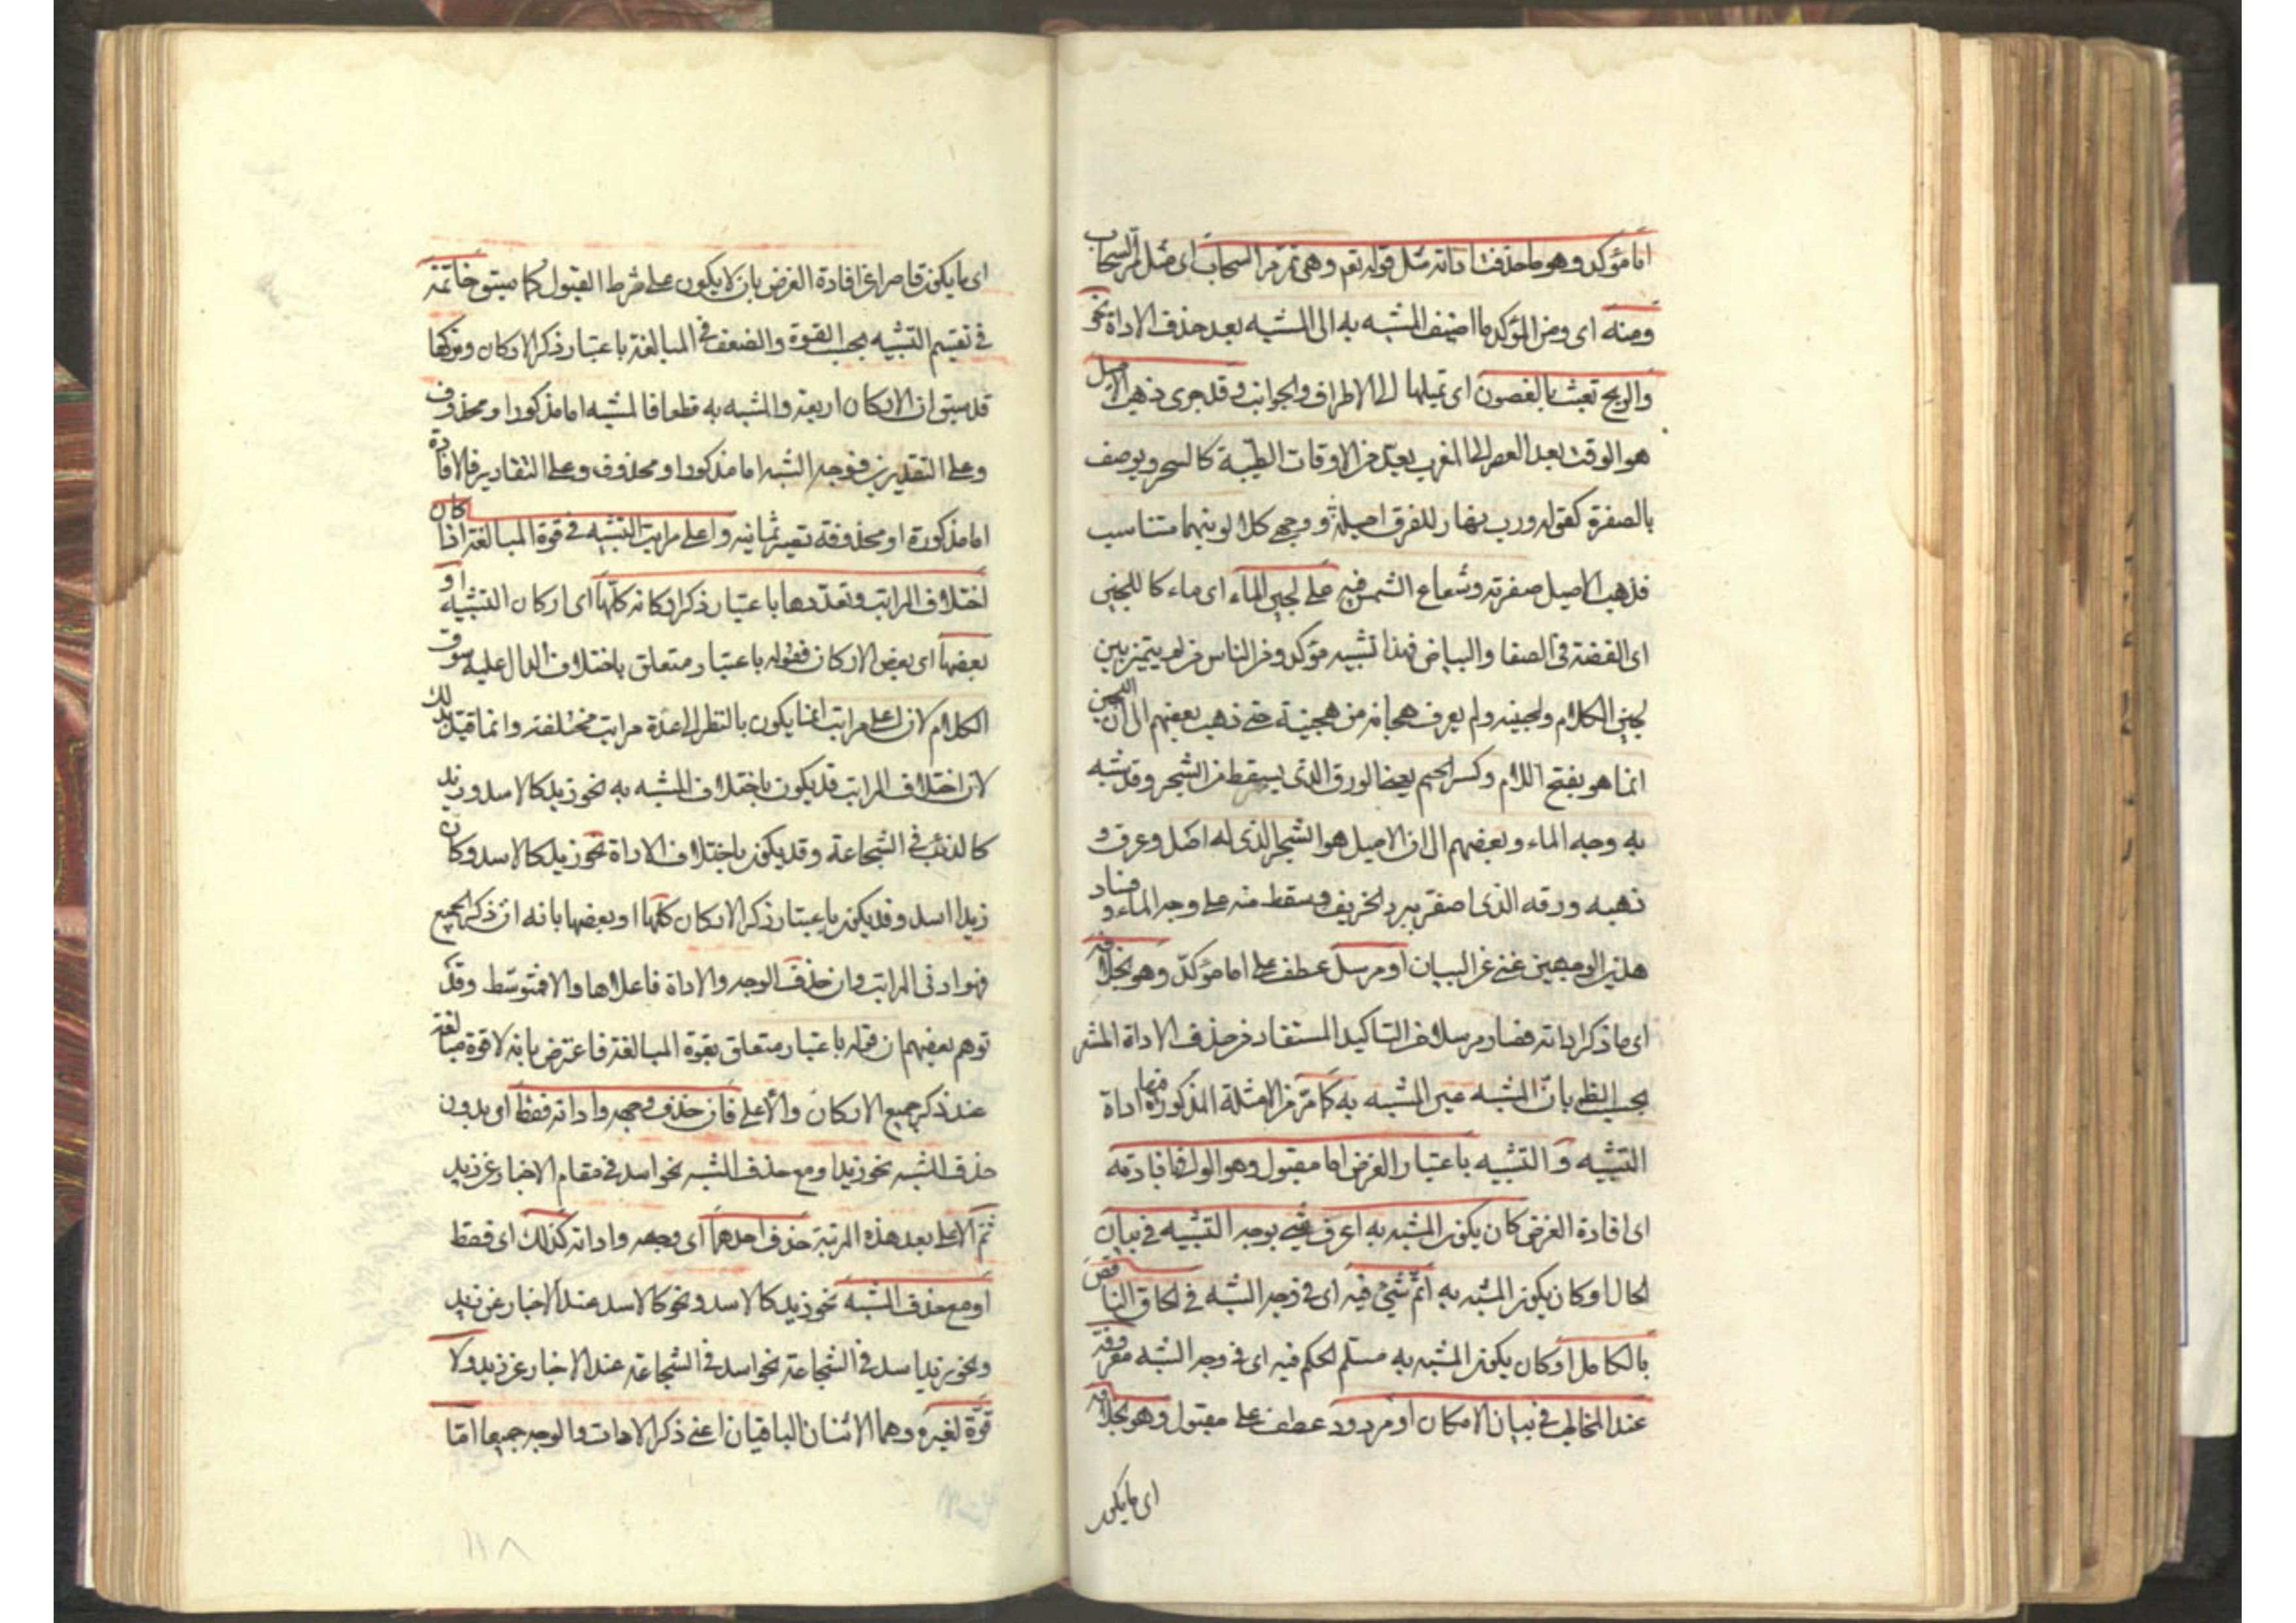 اما مؤكد وهو ما حذفت اداته مثل قوله تعم وهى تمر مر السحاب اى مثل مر السحاب
ومنه اى ومن المؤكد ما اضيف المشبه به الى المشبه بعد حذف الاداة نحو
والريح تعبث بالغصون اى تميلها الى الاطراف والجوانب وقد جرى ذهب الاصيل
هو الوقت بعد العصر الى المغرب يعد من الاوقات الطيبة كالسحر ويوصف
بالصفرة كقوله ورب نهار للفرق اصيله ووجهى كلا لونيهما متناسب
فذهب الاصيل صفرته وشعاع الشمس فيه على لجين الماء اى ماء كاللجين
اى الفضة فى الصفا والبياض فهذا تشبيه مؤكد ومن الناس من لم يتميز بين
لجين الكلام ولجينه ولم يعرف هجانه من هجينة حتى ذهب بعضهم الى ان اللجين
انما هو بفتح اللام وكسر الجيم يعنى الورق الذى يسقط من الشجر وقد شبه
به وجه الماء وبعضهم الى ان الاصيل هو الشجر الذى له اصل وعرق و
ذهبه ورقه الذى اصفر ببرد الخريف وسقط منه على وجه الماء وفساد
هذين الوجهين غنى عن البيان او مرسل عطف على اما مؤكد وهو بخلافه
اى ما ذكر اداته فصار مرسلا من التاكيد المستفاد من حذف الاداة المشعر
بحسب الظ بان المشبه عين المشبه به كما مر من الامثلة المذكورة فيها اداة
التشبيه و التشبيه باعتبار الغرض اما مقبول وهو الوافى بافادته
اى افادة الغرض كان يكون المشبه به اعرف شئ بوجه التشبيه فى بيان
الحال او كان يكون المشبه به اتم شئ فيه اى فى وجه الشبه فى الحاق الناقص
بالكامل او كان يكون المشبه به مسلم الحكم فيه اى فى وجه الشبه معروفة
عند المخاطب فى بيان الامكان او مردود عطف على مقبول وهو بخلافه
اى ما يكون
اى ما يكون قاصرا عن افادة الغرض بان لا يكون على شرط القبول كما سبق خاتمة
فى تقسيم التشبيه بحسب القوة والضعف فى المبالغة باعتبار ذكر الاركان وتركها
قد سبق ان الاركان اربعة والمشبه به قطعا فالمشبه اما مذكور او محذوف
وعلى التقديرين فوجه الشبه اما مذكور او محذوف وعلى التقادير فالاداة
اما مذكورة او محذوفة تصير ثمانية واعلى مراتب التشبيه فى قوة المبالغة اذا كان
اختلاف المراتب وتعددها باعتبار ذكر اركانه كلها اى اركان التشبيه او
بعضها اى بعض الاركان فقوله باعتبار متعلق باختلاف الدال عليه سوق
الكلام لان اعلى مراتب انما يكون بالنظر الى عدة مراتب مختلفة وانما قيد بذلك
لان اختلاف المراتب قد يكون باختلاف المشبه به نحو زيد كالاسد وزيد
كالذئب فى الشجاعة وقد يكون باختلاف الاداة نحو زيد كالاسد وكان
زيدا اسد وقد يكون باعتبار ذكر الاركان كلها او بعضها بانه ان ذكر الجميع
فهو ادنى المراتب وان حذف الوجه والاداة فاعلاها والا فمتوسط وقد
توهم بعضهم ان قوله باعتبار متعلق بقوة المبالغة فاعترض بانه لا قوة مبالغة
عند ذكر جميع الاركان والاعلى فان حذف وجهه واداته فقط اى بدون
حذف المشبه نحو زيد او مع حذف المشبه نحو اسد فى مقام الاخبار عن زيد
ثم الاعلى بعد هذه المرتبة حذف احدهما اى وجهه واداته كذلك اى فقط
او مع حذف المشبه نحو زيد كالاسد ونحو كالاسد عند الاخبار عن زيد
ونحو زيد اسد فى الشجاعة نحو اسد فى الشجاعة عند الاخبار عن زيد ولا
قوة لغيره وهما الاثنان الباقيان اعنى ذكر الادات والوجه جميعا اما
١١٨